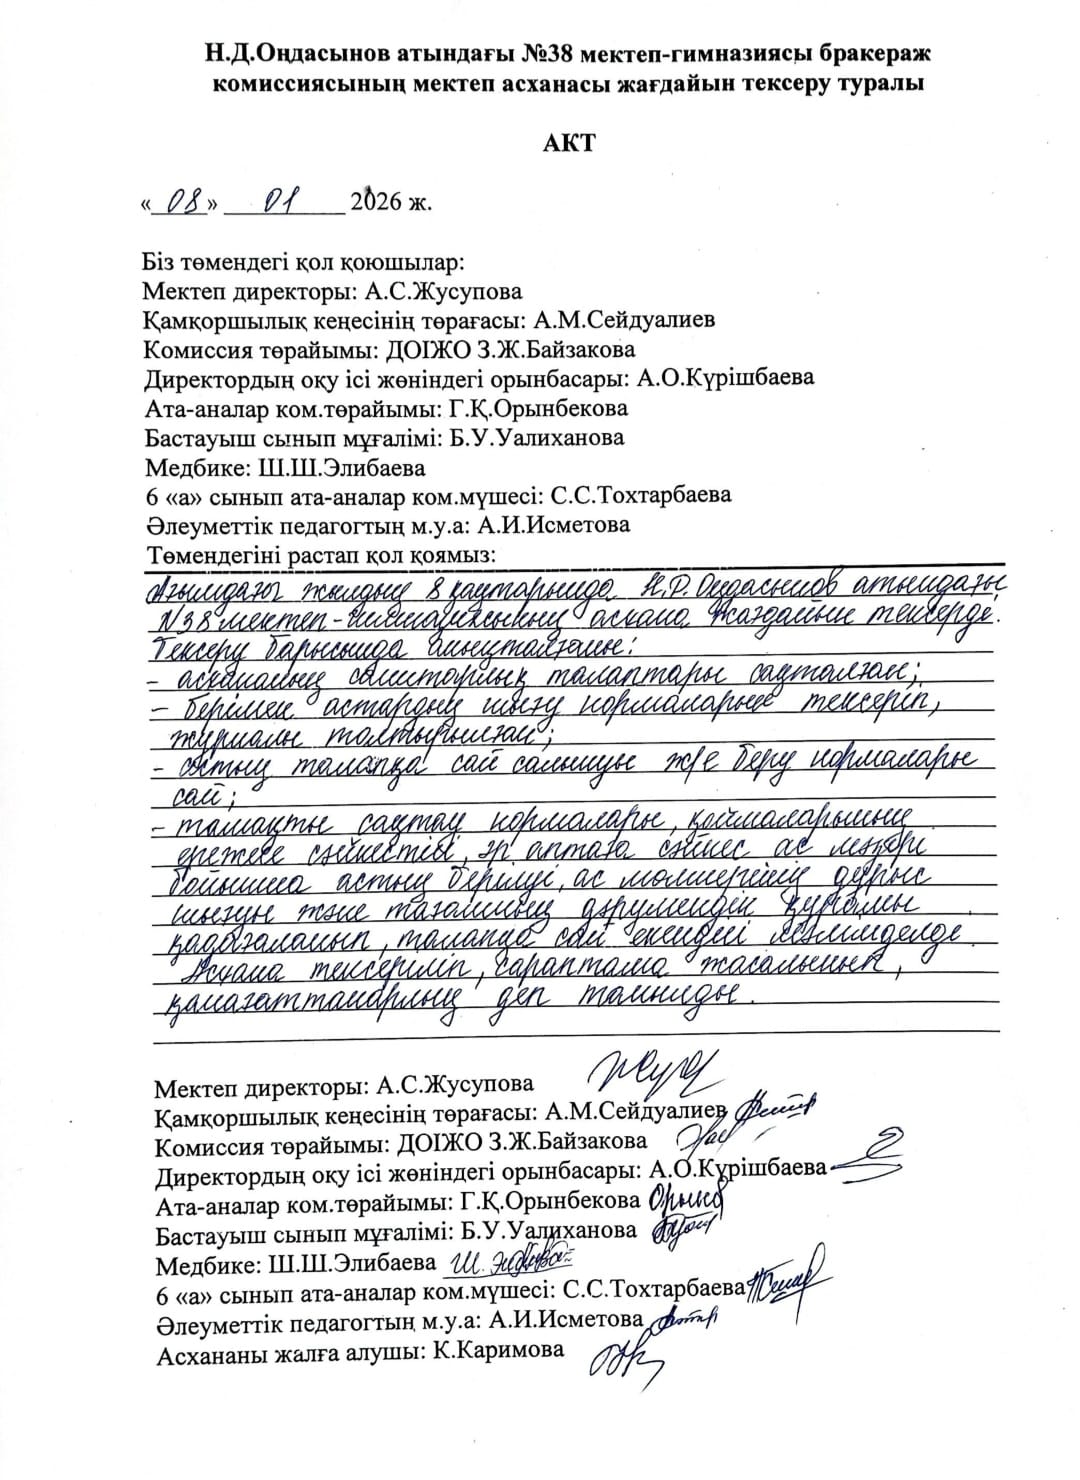 Н.Д.Оңдасынов атындағы №38 мектеп-гимназиясы бракераж
комиссиясының мектеп асханасы жағдайын тексеру туралы
АКТ
«08» 01 2026 ж.
Біз төмендегі қол қоюшылар:
Мектеп директоры: А.С.Жусупова
Қамқоршылық кеңесінің төрағасы: А.М.Сейдуалиев
Комиссия төрайымы: ДОІЖО З.Ж.Байзакова
Директордың оқу ісі жөніндегі орынбасары: А.О.Күрішбаева
Ата-аналар ком.төрайымы: Г.Қ.Орынбекова
Бастауыш сынып мұғалімі: Б.У.Уалиханова
Медбике: Ш.Ш.Элибаева
6 «а» сынып ата-аналар ком.мүшесі: С.С.Тохтарбаева
Әлеуметтік педагогтың м.у.а: А.И.Исметова
Төмендегіні растап қол қоямыз:
Ағымдағы жылдың 8 қаңтарында Н.Д.Оңдасынов атындағы
N38 мектеп-гимназиясының асхана жағдайын тексерді.
Тексеру барысында анықталғаны:
- асхананың санитарлық талаптары сақталған;
- берілген астардың шығу нормаларын тексеріп,
журналы толтырылған;
- астың талапқа сай салынуы және беру нормалары
сай;
- тамақты сақтау нормалары, қоймаларының
ережеге сәйкестігі, әр аптаға сәйкес ас мәзірі
бойынша астың берілуі, ас мөлшерінің дұрыс
шығуы және тағамның дәрумендік құрамы
қадағаланып, талапқа сай екендігі
Асхана тексеріліп, сараптама жасалынып,
қанағаттанарлық деп танылды.
Мектеп директоры: А.С.Жусупова
Қамқоршылық кеңесінің төрағасы: А.М.Сейдуалиев
Комиссия төрайымы: ДОІЖО З.Ж.Байзакова
Директордың оқу ісі жөніндегі орынбасары: А.О.Күрішбаева
Ата-аналар ком.төрайымы: Г.Қ.Орынбекова
Бастауыш сынып мұғалімі: Б.У.Уалиханова
Медбике: Ш.Ш.Элибаева
6 «а» сынып ата-аналар ком.мүшесі: С.С.Тохтарбаева
Әлеуметтік педагогтың м.у.а: А.И.Исметова
Асхананы жалға алушы: К.Каримова